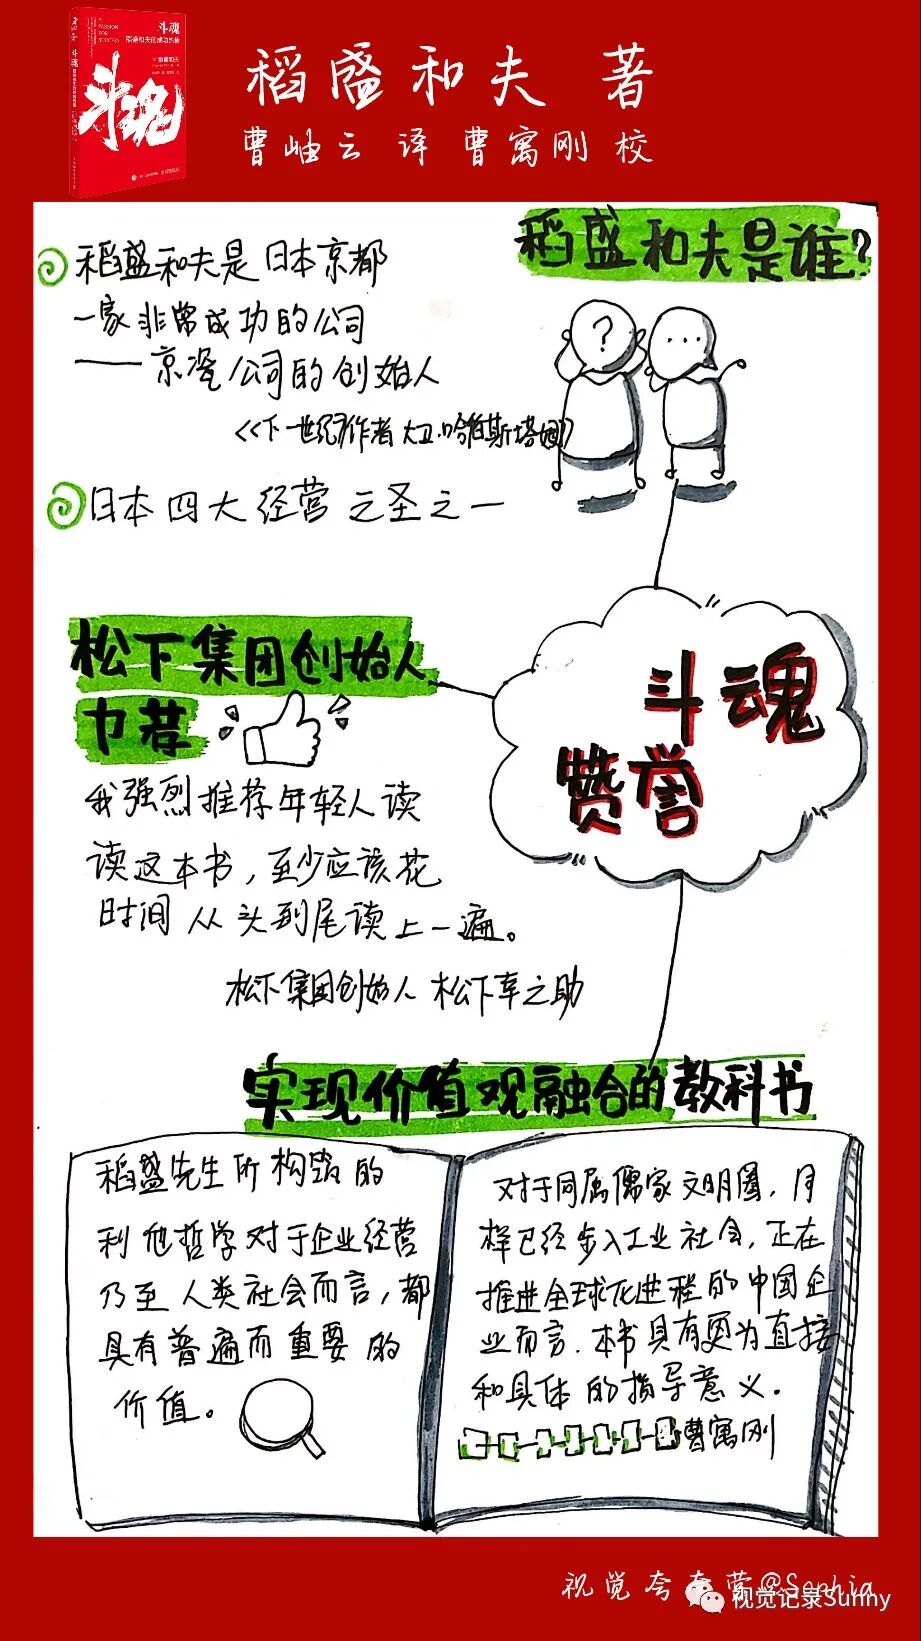 A
PASSION
FOR
SUCCESS
斗魂
稻盛和夫的成功热情
斗魂
斗魂
稻盛和夫 著
曹岫云 译 曹寓刚 校
稻盛和夫是谁?
稻盛和夫是日本京都
一家非常成功的公司
——京瓷公司的创始人
<<下一世纪>作者 大卫.哈伯斯塔姆>
日本四大经营之圣之一
?
...
斗魂
赞誉
松下集团创始人
力荐
我强烈推荐年轻人读
读这本书,至少应该花
时间从头到尾读上一遍。
松下集团创始人 松下幸之助
实现价值观融合的教科书
稻盛先生所构筑的
利他哲学对于企业经营
乃至人类社会而言,都
具有普遍而重要的
价值。
对于同属儒家文明圈,同
样已经步入工业社会,正在
推进全球化进程的中国企
业而言.本书具有更为直接
和具体的指导意义.
曹寓刚
视觉夸夸营@Sophia
视觉记录Sunny